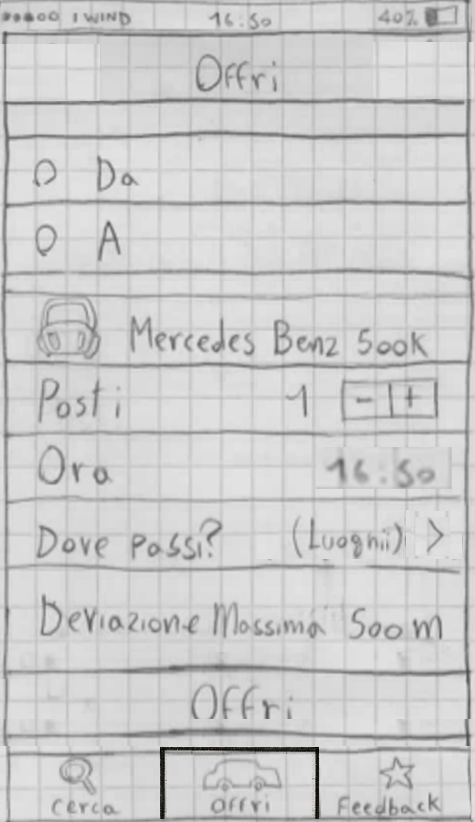 I WIND 16:50 40%
Offri
Da
A
Mercedes Benz 500K
Posti 1 - +
Ora 16:50
Dove passi? (Luoghi) >
Deviazione Massima 500 m
Offri
Cerca Offri Feedback